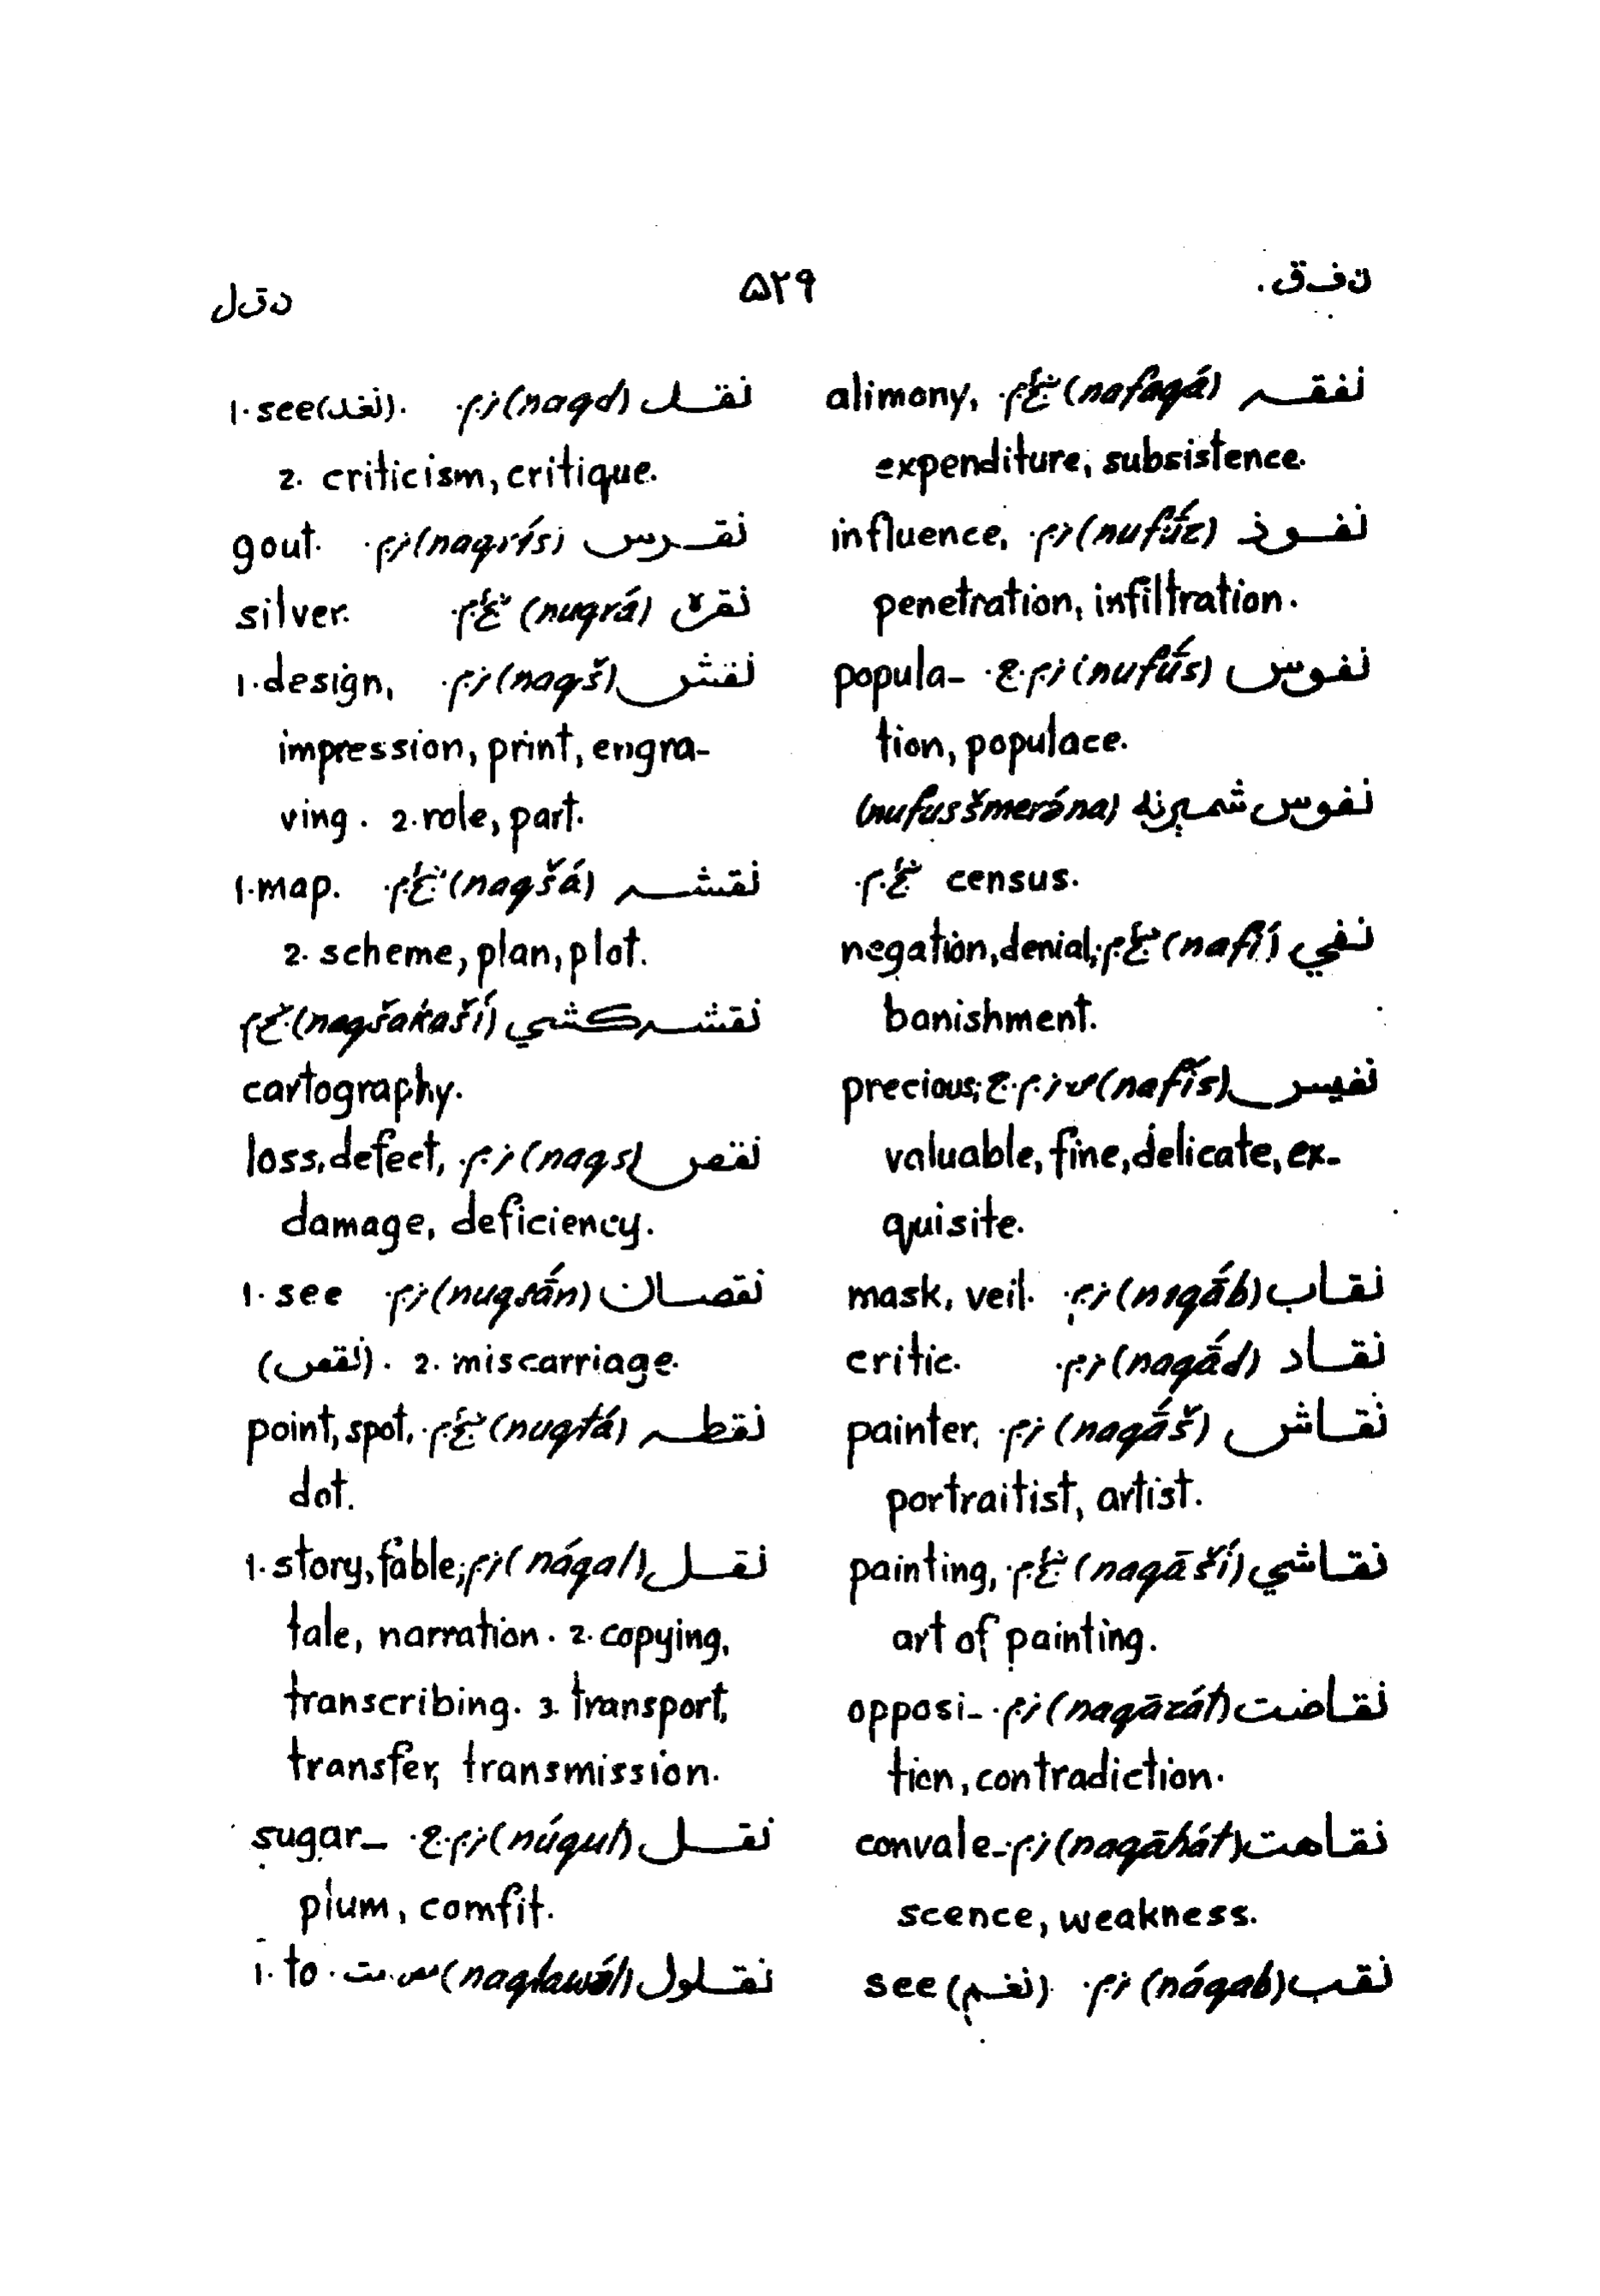 ن ف ق.
۵۲۹
ن ق ل
نفقه (nafaqá) alimony,
expenditure, subsistence.
نفوذ (nufū́z) influence,
penetration, infiltration.
نفوس (nufū́s) popula-
tion, populace.
نفوس شمېرنه (nufusšmerə́na)
census.
نفي (nafí) negation, denial,
banishment.
نفیس (nafīs) precious,
valuable, fine, delicate, ex-
quisite.
نقاب (niqā́b) mask, veil.
نقاد (naqā́d) critic.
نقاش (naqā́š) painter,
portraitist, artist.
نقاشي (naqāší) painting,
art of painting.
نقاضت (naqāzát) opposi-
tion, contradiction.
نقاهت (naqāhát) convale-
scence, weakness.
نقب (náqab) see (نغم).
نقد (naqd) 1. see (نغد).
2. criticism, critique.
نقرس (naqrís) gout.
نقره (nuqrá) silver.
نقش (naqš) 1. design,
impression, print, engra-
ving. 2. role, part.
نقشه (naqšá) 1. map.
2. scheme, plan, plot.
نقشه کشي (naqšakaší)
cartography.
نقص (naqs) loss, defect,
damage, deficiency.
نقصان (nuqsā́n) 1. see
(نقص). 2. miscarriage.
نقطه (nuqtá) point, spot,
dot.
نقل (náqal) 1. story, fable,
tale, narration. 2. copying,
transcribing. 3. transport,
transfer, transmission.
نقل (núqul) sugar-
plum, comfit.
نقلول (naqlawə́l) 1. to